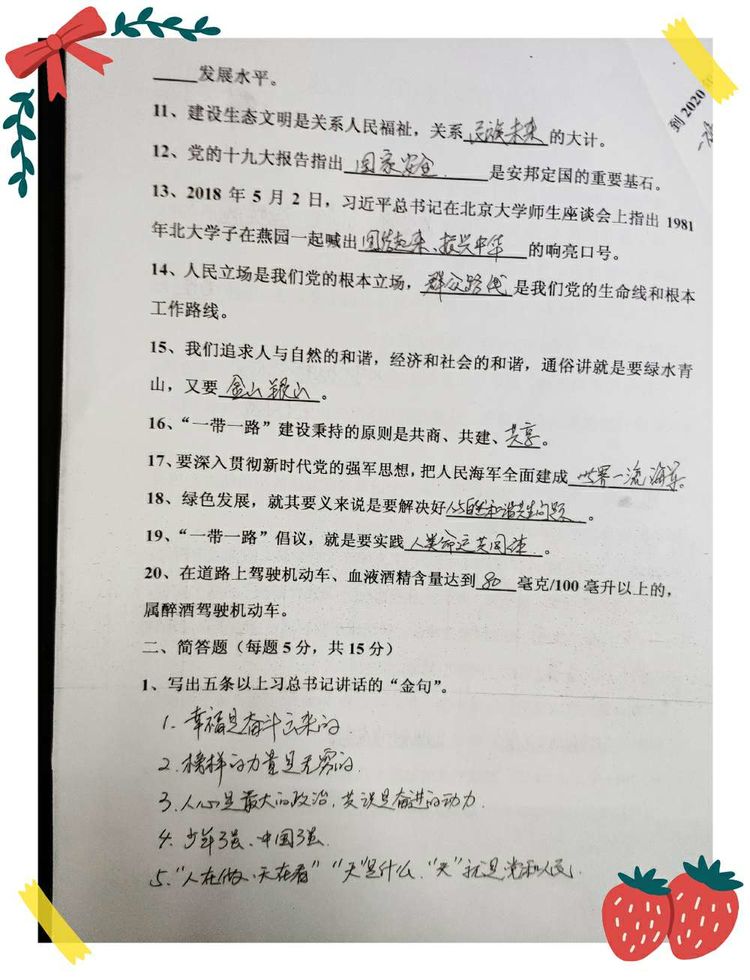 ____发展水平。
到 2020
11、建设生态文明是关系人民福祉，关系 民族未来 的大计。
12、党的十九大报告指出 国家安全 是安邦定国的重要基石。
13、2018 年 5 月 2 日，习近平总书记在北京大学师生座谈会上指出 1981
年北大学子在燕园一起喊出 团结起来、振兴中华 的响亮口号。
14、人民立场是我们党的根本立场，群众路线 是我们党的生命线和根本
工作路线。
15、我们追求人与自然的和谐，经济和社会的和谐，通俗讲就是要绿水青
山，又要 金山银山 。
16、“一带一路”建设秉持的原则是共商、共建、共享。
17、要深入贯彻新时代党的强军思想，把人民海军全面建成 世界一流海军。
18、绿色发展，就其要义来说是要解决好人与自然和谐共生问题 。
19、“一带一路”倡议，就是要实践 人类命运共同体 。
20、在道路上驾驶机动车、血液酒精含量达到 80 毫克/100 毫升以上的，
属醉酒驾驶机动车。
二、简答题（每题 5 分，共 15 分）
1、写出五条以上习总书记讲话的“金句”。
1. 幸福是奋斗出来的
2. 榜样的力量是无穷的.
3. 人心是最大的政治, 共识是奋进的动力.
4. 少年强、中国强.
5. “人在做、天在看” “天”是什么. “天”就是党和人民.